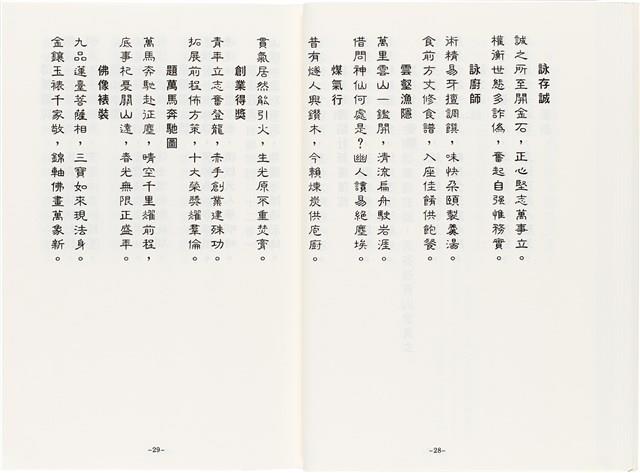 詠存誠
誠之所至開金石，正心堅志萬事立。
權衡世態多詐偽，奮起自强惟務實。
詠廚師
術精易牙擅調饌，味快朵頤製羹湯。
食前方丈修食譜，入座佳餚供飽餐。
雲壑漁隱
萬里雲山一鑑開，清流扁舟駛岩涯。
借問神仙何處是？幽人讀易絕塵埃。
煤氣行
昔有燧人興鑽木，今賴煉炭供庖廚。
-28-
貫氣居然能引火，生光原不重焚膏。
創業得獎
青年立志奮登龍，赤手創業建殊功。
拓展前程佈方策，十大榮獎耀羣倫。
題萬馬奔馳圖
萬馬奔馳赴征塵，晴空千里耀前程，
底事杞憂關山遠，春光無限正盛年。
佛像裱裝
九品蓮臺菩薩相，三寶如來現法身。
金鑲玉裱千家敬，錦軸佛畫萬象新。
-29-